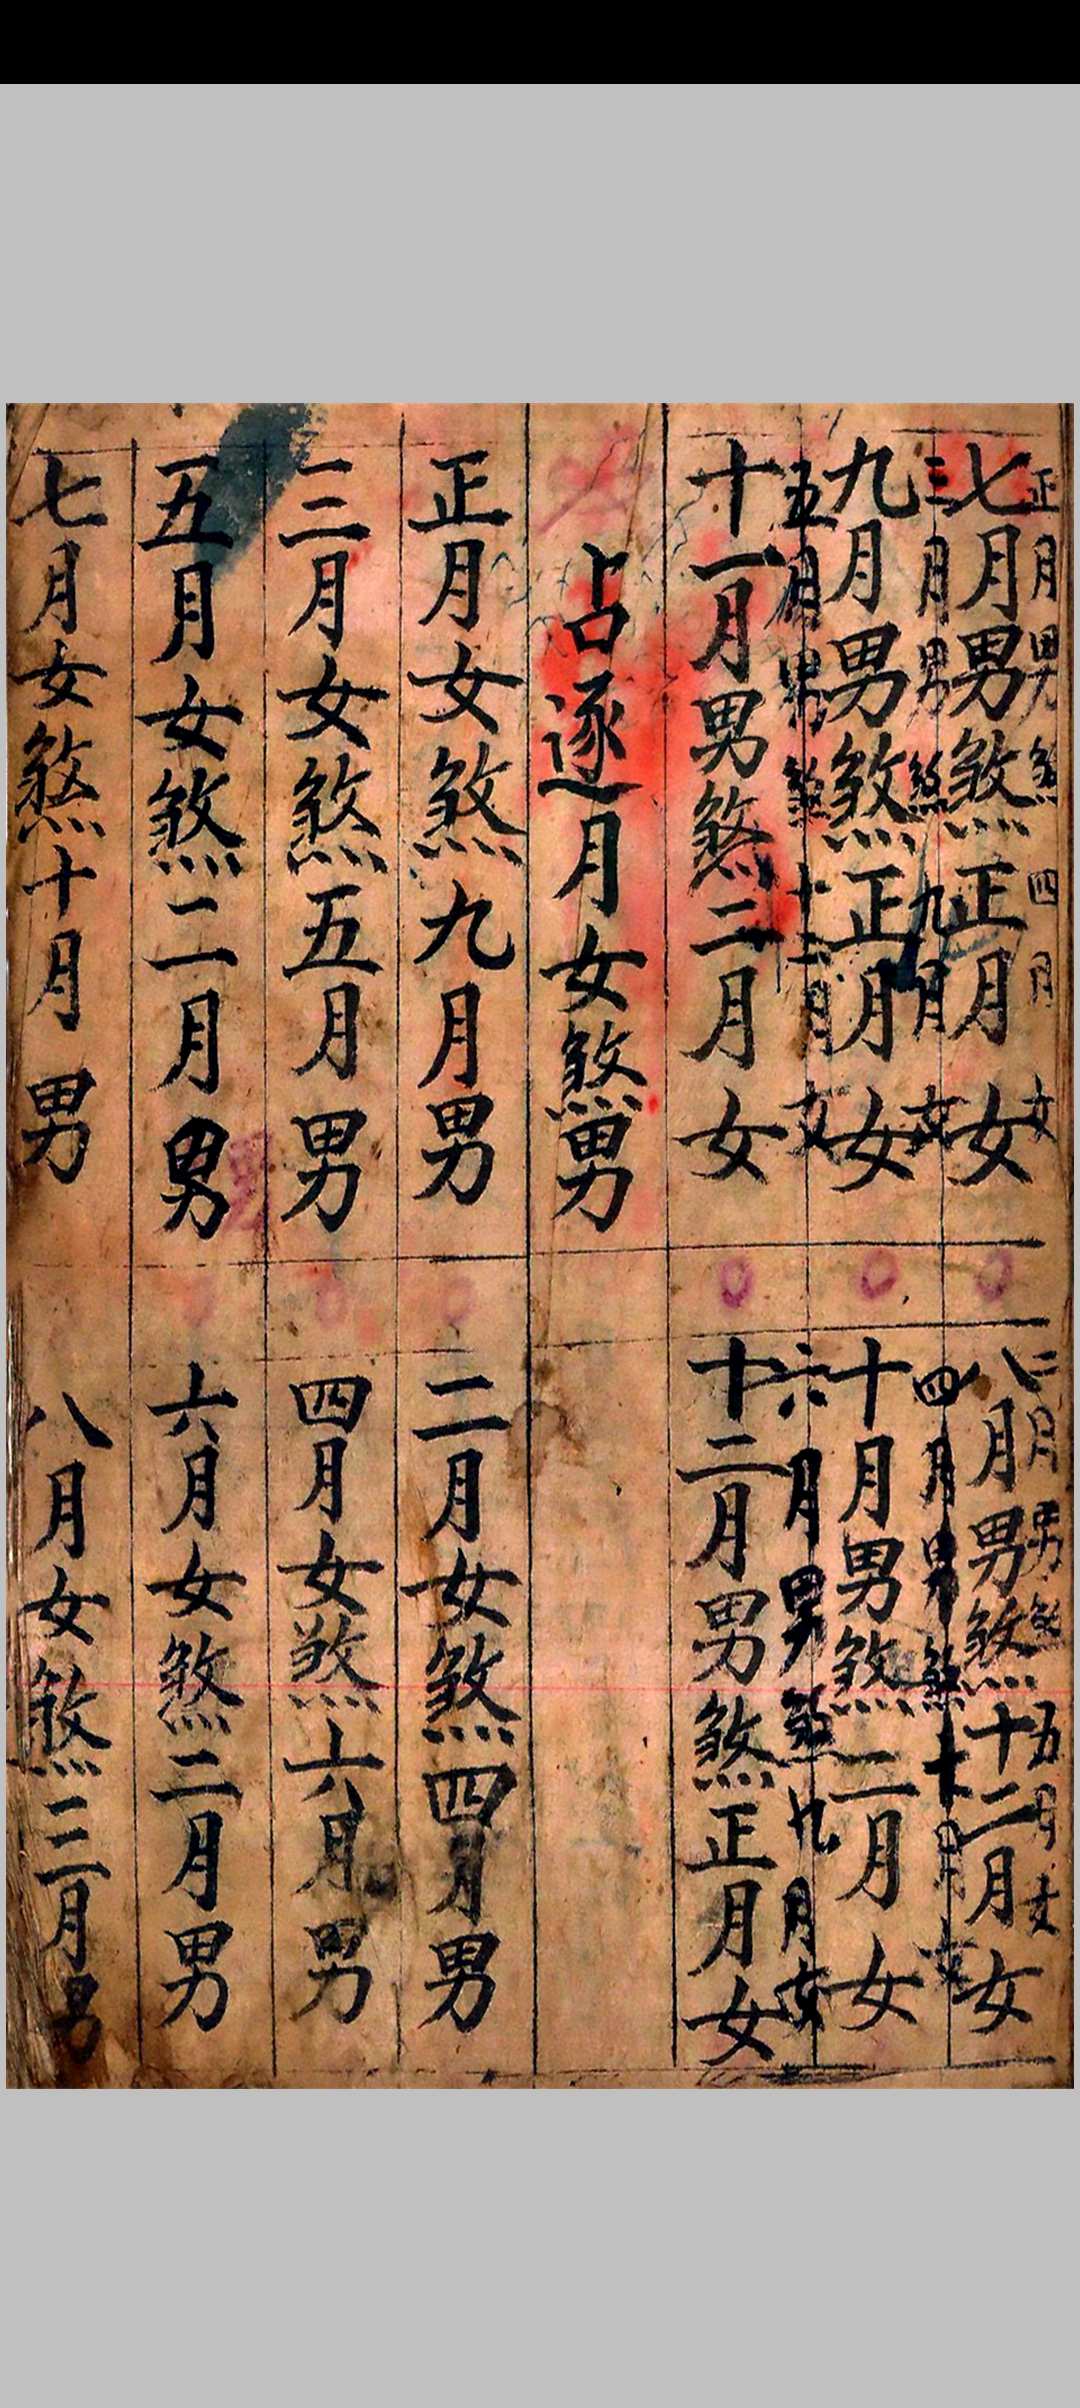 正月男煞四月女
七月男煞正月女
三月男煞九月女
九月男煞正月女
五月男煞十二月女
十一月男煞二月女
二月男煞五月女
八月男煞十二月女
四月男煞十月女
十月男煞二月女
六月男煞九月女
十二月男煞正月女
占逐月女煞男
正月女煞九月男
二月女煞四月男
三月女煞五月男
四月女煞六月男
五月女煞二月男
六月女煞二月男
七月女煞十月男
八月女煞三月男